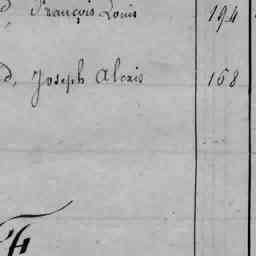 d, François Louis 194
d, Joseph Alexis 158